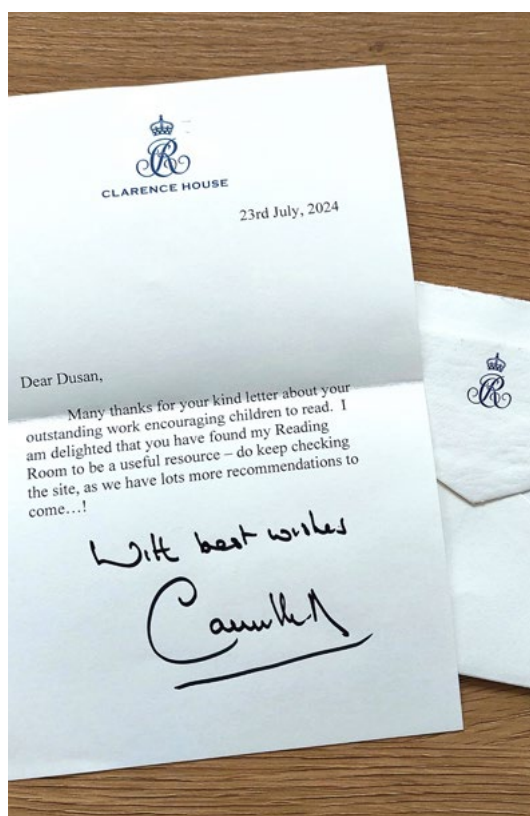 CLARENCE HOUSE
23rd July, 2024
Dear Dusan,
Many thanks for your kind letter about your
outstanding work encouraging children to read. I
am delighted that you have found my Reading
Room to be a useful resource – do keep checking
the site, as we have lots more recommendations to
come…!
With best wishes
Camilla R